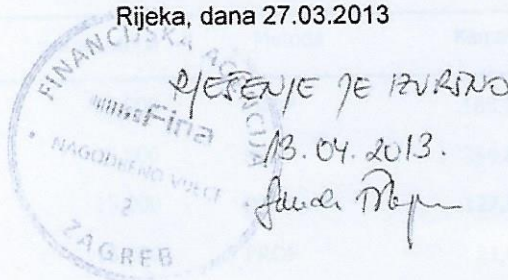 Rijeka, dana 27.03.2013
FINANCIJSKA AGENCIJA
Fina
NAGODBENO VIJEĆE
2
ZAGREB
RJEŠENJE JE IZVRŠNO
13.04.2013.